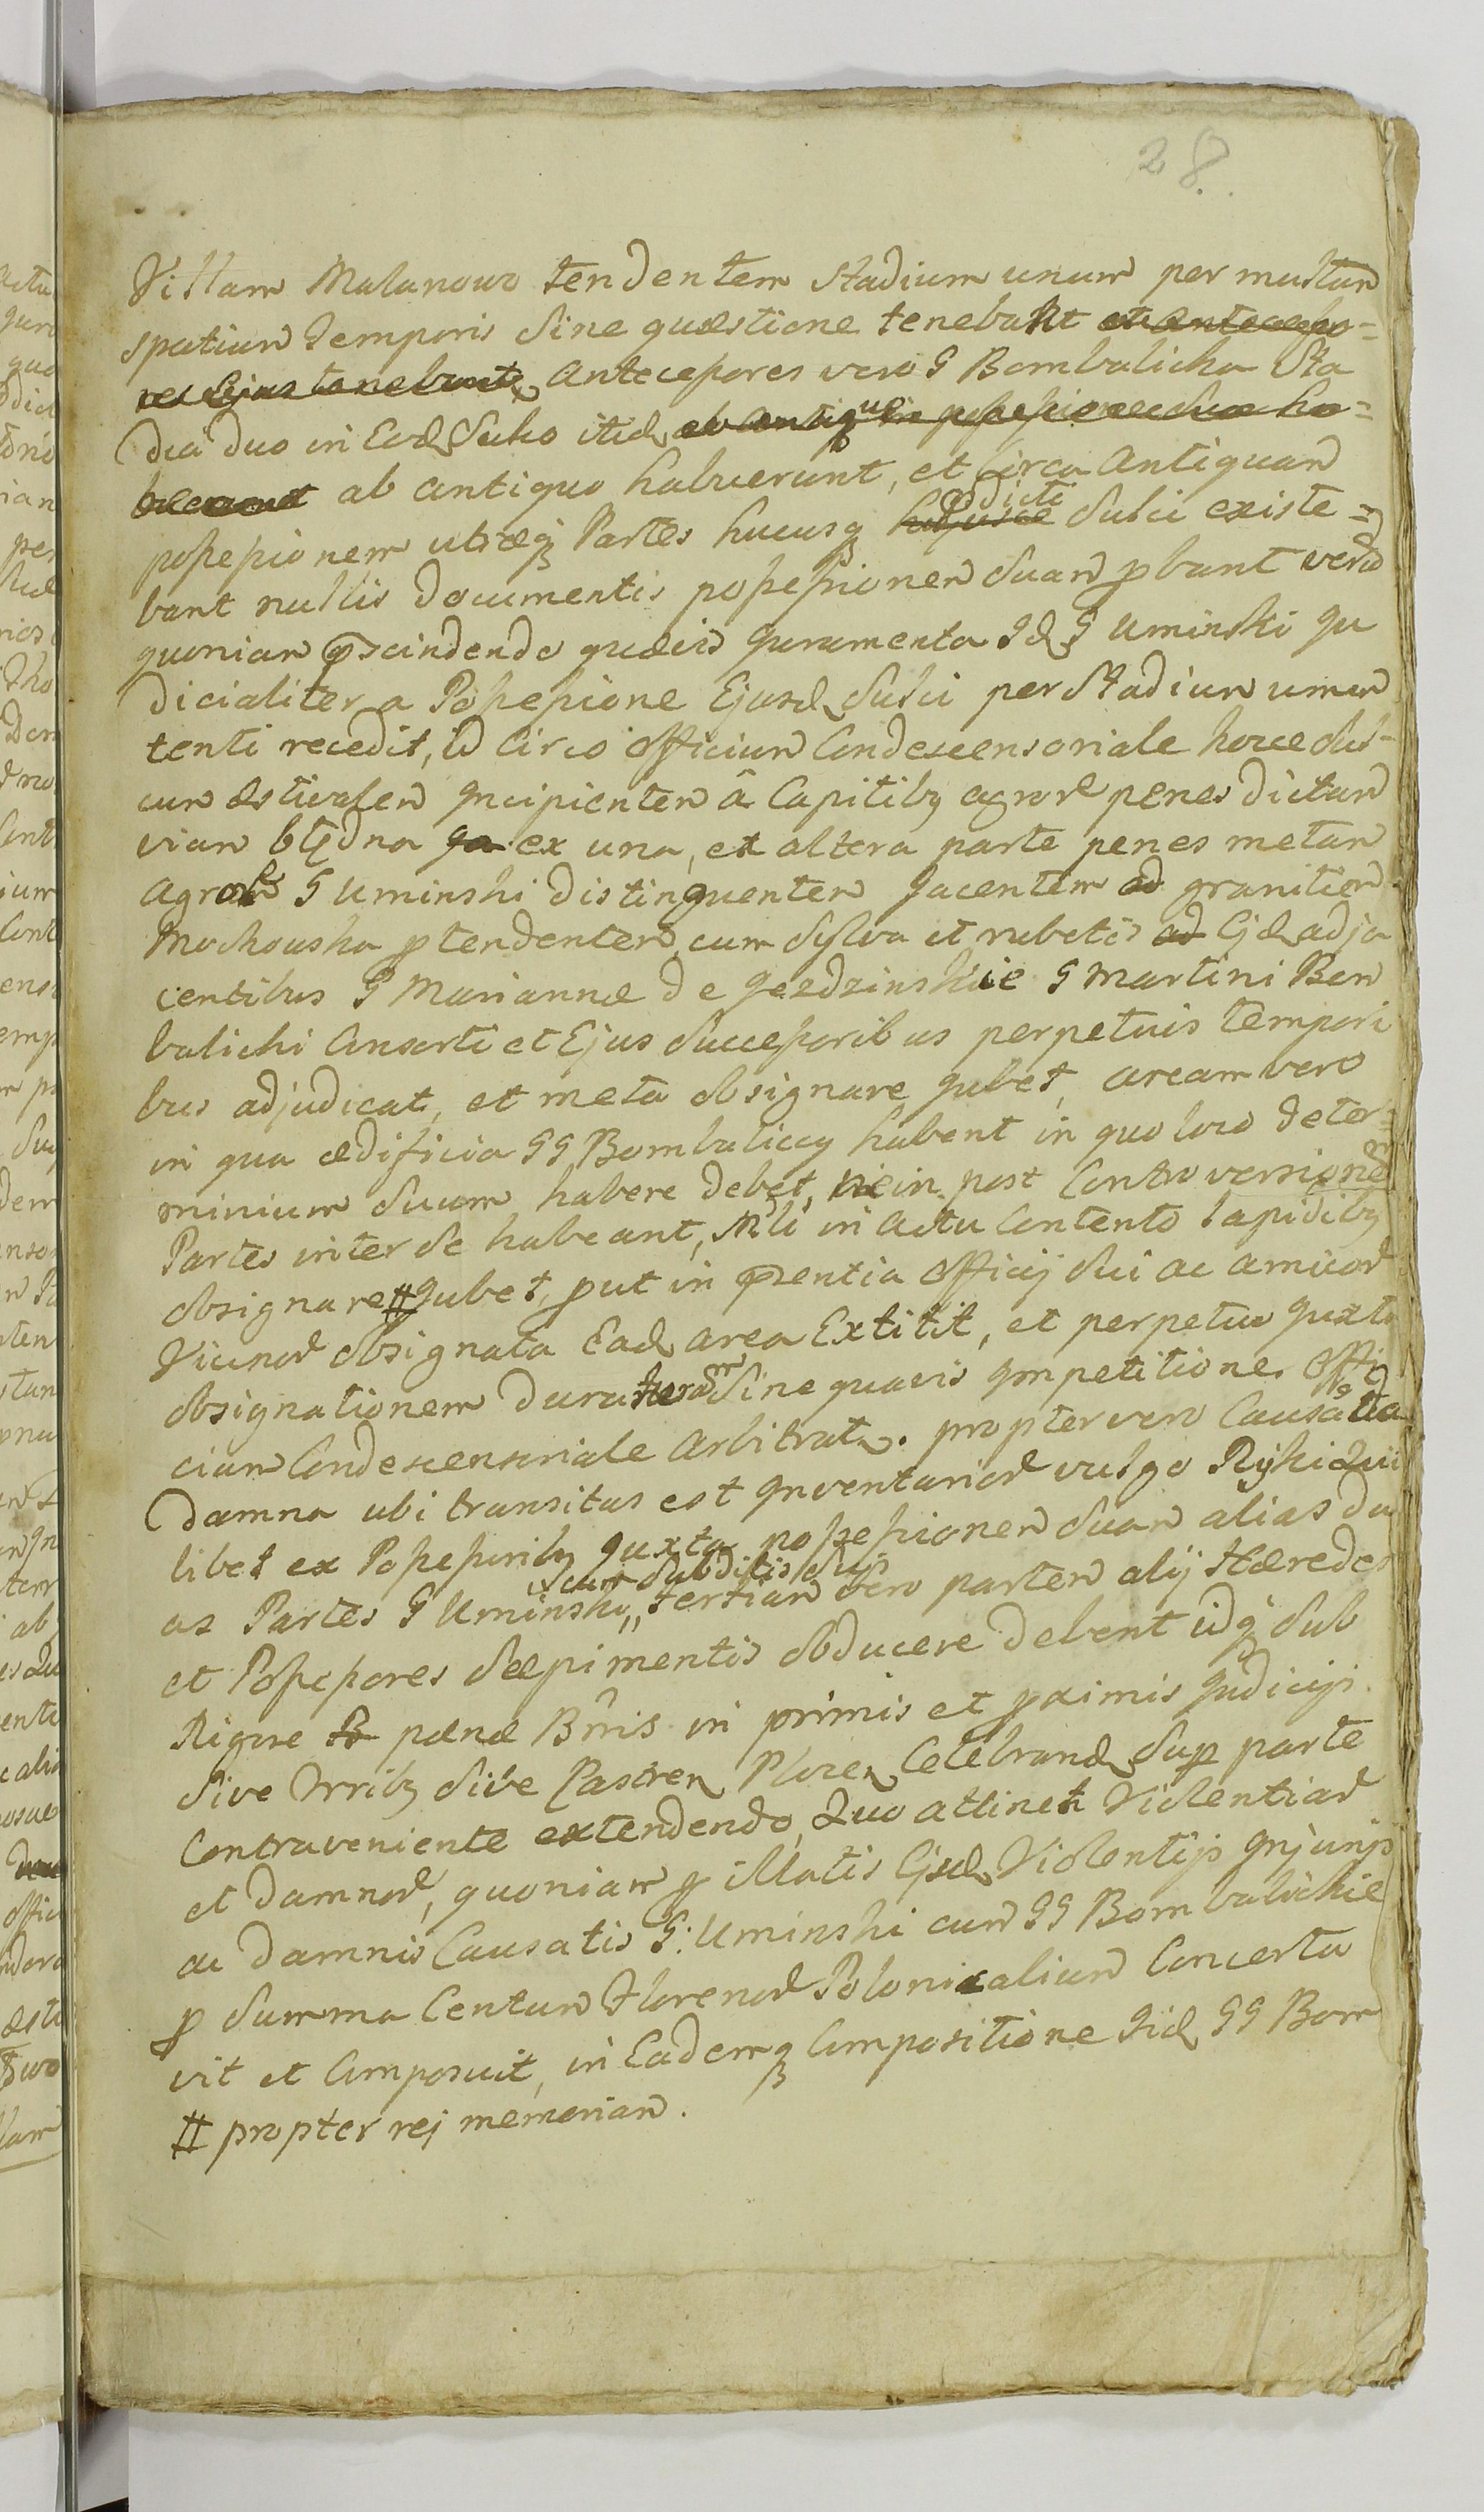 28.
Villam Malanowo tendentem Stadium unum per multum
spatium Temporis Sine quæstione tenebant et antecesso=
res Ejus tenebant, Antecessores vero G Bombalicka Sta
dia duo in Eod Sulco itid ab antiquo in possessione sua ha=
buerunt ab antiquo habuerunt, et circa Antiquam
possessionem utræq Partes hucusq hujusce dicti Sulci existe=
bant nullis documentis possessionem Suam pbant verum
quoniam pscindendo quævis Juramenta Id G Uminski Ju
dicialiter a Possessione Ejusd Sulci per Stadium unum
tenti recedit, Id Circo Officium Condescensoriale hocce Sul=
cum æstivalem Incipientem â Capitiby agror penes dictam
viam błędna ex una, et altera parte penes metam
Agror G Uminski distinguentem Jacentem ad granitiem
Mochowska ptendentem, cum Sylva et rubetis ad Ejd adja
centibus G Mariannæ de Jezdzinskie G Martini Bom
balicki Consorti et Ejus Successoribus perpetuis Tempori
bus adjudicat, et meta obsignare Jubet, aream vero
in qua ædificia GG Bombaliccy habent in quo loco deter=
minium Suum habere debet, ne in post Controversione
Partes inter Se habeant, Nli in Actu Contento lapidiby
obsignare # Jubet, put in psentia Officij Sui ac amicor
Vicinor obsignata Ead area Extitit, et perpetuo Juxta
obsignationem duraturam Sine quavis Impetitione Offi
cium Condescensoriale Arbitratr. propter vero Causata
Damna ubi transitus est Inventarior vulgo Ryki Qui
libet ex Possessoriby Juxta possessionem Suam alias du
as Partes G Uminski, cum Subditis Suis tertiam vero partem alij Hæredes
et Possessores Sæpimentis obducere debent idq Sub
Rigore pænæ Bnis in primis et pximis Judicijs
Sive Trriby Sive Castren Plocen Celebrand Sup parte
Contraveniente extendendo, Quo attinet Violentiar
et Damnor, quoniam p illatis Ejsd Violentijs Injurijs
ac damnis Causatis G: Uminski cum GG Bombalickie
p Summa Centum Florenor Polonicalium Concerta
vit et Composuit, in Eademq Compositione Iid GG Bom
# propter rej memoriam.